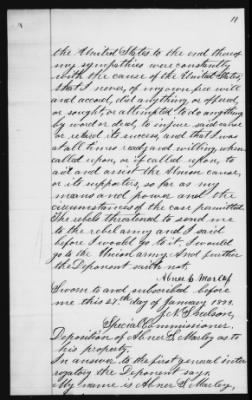 11
the United States to the end thereof
my sympathies were constantly
with the cause of the United States,
that I never, of my own free will
and accord, did anything, or offered,
or sought, or attempted to do anything
by word or deed, to injure said cause
or retard its success, and that I was
at all times ready and willing when
called upon, or if called upon, to
aid and assist the Union cause,
or its supporters, so far as my
means and power and the
circumstances of the case permitted.
The rebels threatened to send me
to the rebel army and I said
before I would go to it, I would
go to the Union army. And further
the Deponent saith not.
Abner L
Sworn to and subscribed before
me this day of January
Special Commissioner.
Deposition of Abner L. Marley as to
his property.
In answer to the first general inter
rogatory the Deponent says.
My name is Abner L. Marley,